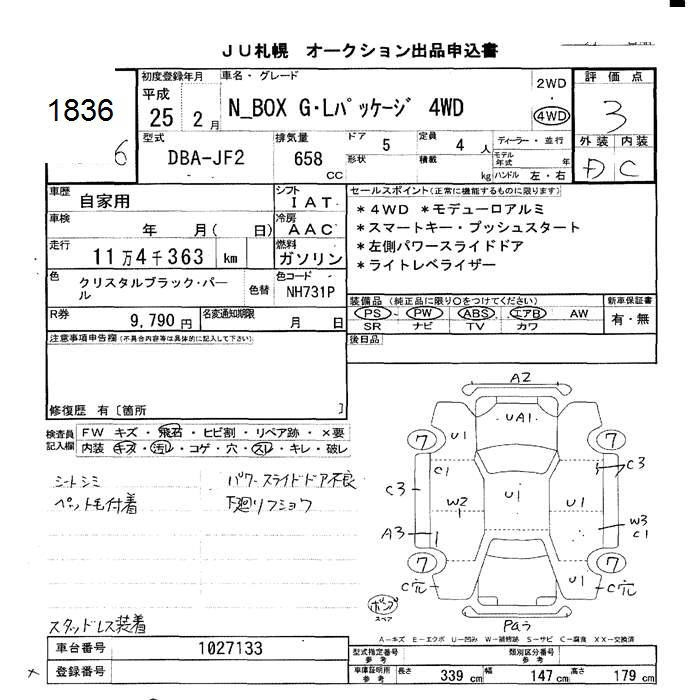 JU札幌 オークション出品申込書
1836
6
初度登録年月 車名・グレード
平成
25 2 月 N_BOX G・Lパッケージ 4WD
2WD
4WD
評価点
3
外装 内装
D C
型式 排気量 ドア 5 定員 4 人 ディーラー・並行
DBA-JF2 658 CC 形状 積載 kg モデル年式 年
ハンドル 左・右
車歴 自家用 シフト IAT セールスポイント(正常に機能するものに限ります)
車検 年 月( 日) 冷房 AAC
走行 11万4千363 km 燃料 ガソリン
*4WD *モデューロアルミ
*スマートキー・プッシュスタート
*左側パワースライドドア
*ライトレベライザー
色 クリスタルブラック・パール 色替 色コード NH731P
R券 9,790円 名変通知期限 月 日
装備品(純正品に限り○をつけてください) 新車保証書
PS PW ABS エアB AW 有・無
SR ナビ TV カワ
後日品
注意事項申告欄(不具合内容等は具体的に記入して下さい)
修復歴 有〔箇所 〕
検査員記入欄 FW キズ・飛石・ヒビ割・リペア跡・×要
内装 キズ・汚レ・コゲ・穴・スレ・キレ・破レ
シートシミ パワースライドドア不良
ペット毛付着 下廻リフショウ
スタッドレス装着
A2
UA1
U1
7
7
C1
C3
C3
W2
1
U1
U1
A3
W3
C1
7
7
C穴
U1
C穴
Paう
ボンブ
スペア
A-キズ E-エクボ U-凹み W-補修跡 S-サビ C-腐食 XX-交換済
車台番号 1027133
登録番号
型式指定番号 参考 類別区分番号 参考
車庫証明用 参考 長さ 339 cm 幅 147 cm 高さ 179 cm